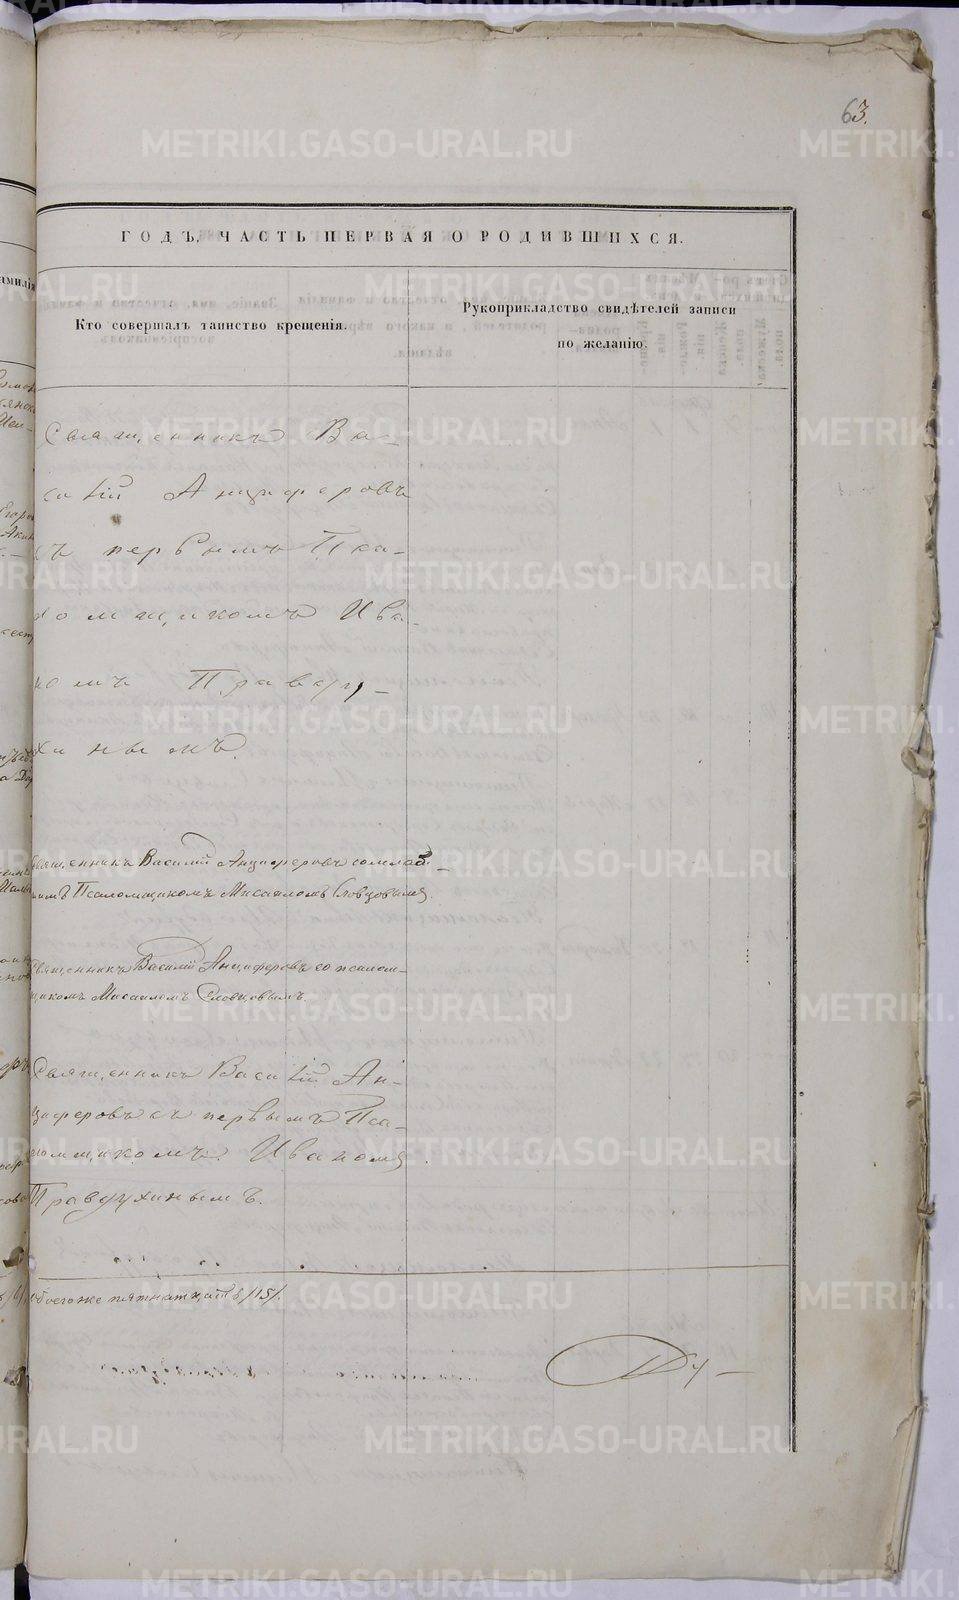 63.
ГОДЪ, ЧАСТЬ ПЕРВАЯ О РОДИВШИХСЯ.
Кто совершалъ таинство крещенія.
Рукоприкладство свидѣтелей записи
по желанію.
Священникъ Ва-
силій Анциферовъ
съ первымъ Пса-
ломщикомъ Ива-
номъ Правду-
хинымъ.
Священникъ Василій Анциферовъ со млад-
шимъ Псаломщикомъ Мисаиломъ Словцовымъ.
Священникъ Василій Анциферовъ со псалом-
щикомъ Мисаиломъ Словцовымъ.
Священникъ Василій Ан-
циферовъ съ первымъ Пса-
ломщикомъ Иваномъ
Правдухинымъ.
обоего же пятнатцать /15/.
METRIKI.GASO-URAL.RU